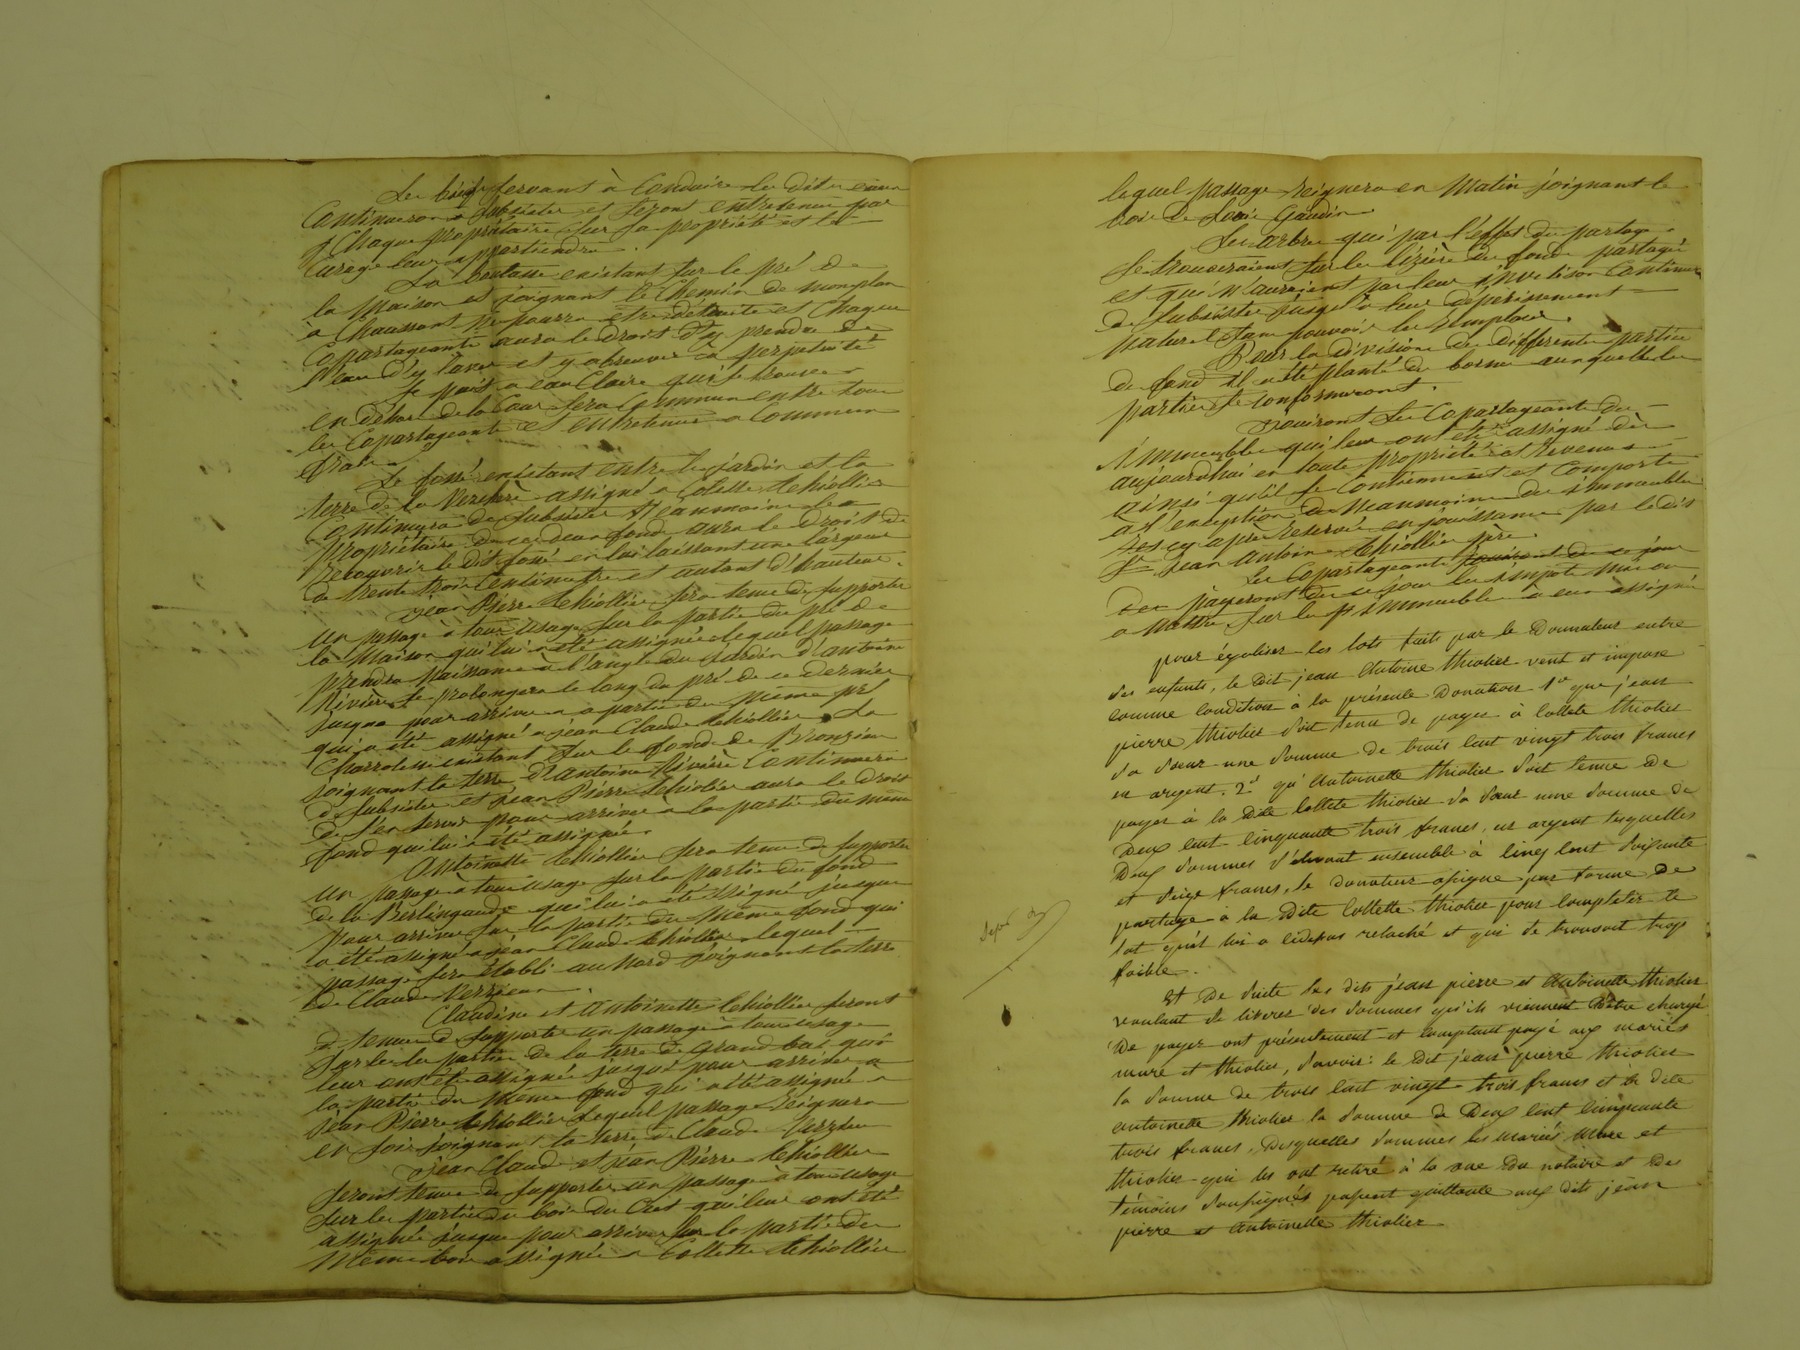 Les biefs servant à Conduire les dites eaux
Continueront a Subsister et Seront entretenus par
Chaque propriétaire sur Sa propriété et le
Curage leur appartiendra.
La boutasse existant sur le pré de
la Maison et joignant le Chemin de monplan
à Chaussant ne pourra etre détruite et Chaque
Copartageants aura le Droit d'y prendre de
l'eau d'y laver et y abreuver à perpétuité
Le puits a eau Claire qui se trouve
en dehors de la Cour sera Commun entre tous
les Copartageants et entretenus a Commun
frais
Le fossé existant entre le jardin et la
terre de la Verchère assigné a Colette thiollier
Continuera de subsister Neanmoins les
propriétaires de ces deux fond aura le droit de
recouvrir le dit fossé en lui laissant une largeur
de trente trois Centimetre et autant d'hauteur.
Jean Pierre thiollier sera tenu de supporter
un passage à tous usage sur la partie du pré de
la Maison qui lui a été assignée lequel passage
prendra Naissance à l'angle du jardin d'antoine
Rivière se prolongera le long du pré de ce dernier
jusque pour arriver a a partie du Même pré
qui a été assigné a jean Claude thiollier La
Charrole existant sur le fond de Bronzieu
joignant la terre d'Antoine Rivière Continuera
de Subsister et jean Pierre thiolier aura le Droit
de s'en servir pour arriver à la partie du même
fond qui lui a été assignée.
Antoinette thiollier sera tenue de supporter
un passage a tous usage sur la partie du fond
de la Berlingaude qui lui a été assigné jusque
pour arriver sur la partie du Même fond qui
a été assigné a jean Claude thiollier lequel
passage sera établi au Nord joignant la terre
de Claude Verzieux.
Claudine et Antoinette thiollier seront
tenues de supporter un passage à tous usage
sur les partie de la terre de Grand bas qui
leur ont été assigné jusque pour arriver a
la partie du Même fond qui a été assignée a
jean Pierre thiollier lequel passage Reignera
en soir joignant la terre de Claude Verzieu
Jean Claude et jean Pierre thiollier
seront tenus de supporter un passage à tous usage
sur les parties du bois du Cret qui leur ont été
assignée jusque pour arriver sur la partie du
Même bois assignée a Collette thiollier
lequel passage Reignera en Matin joignant le
bois de Gaudin
Les arbres qui par l'effet du partage
se trouveraient sur les lizière des fonds partagés
et qui n'auraient pas leur Continueront
de Subsister jusqu'à leur dépérissement
naturel sans pouvoir les Remplacer.
Pour la division des différentes parties
de fond il a été planté des bornes auxquelles les
parties se conformeront.
Jouiront les Copartageants des
immeubles qui leur ont été assigné dès
aujourdhui en toute propriété et revenus
ainsi qu'ils se Contiennent et Comporte
à l'exception Neanmoins des immeubles
cy après Reservée en jouissance par le dit
Sr Jean antoine thiollier père.
Les Copartageants jouiront de ce jour
payeront de ce jour les impots mis ou
a Mettre sur les immeubles a eux assigné
pour égaliser les lots faits par le Donnateur entre
ses enfants, le dit jean Antoine thiolier veut et impose
comme condition à la présente Donation 1° que jean
pierre thiolier soit tenu de payer à Collete thiolier
sa Sœur une Somme de trois cent vingt trois francs
en argent. 2° qu'Antoinette thiolier soit tenue de
payer à la dite Collete thiolier sa Sœur une Somme de
Deux cent cinquante trois francs, en argent lesquelles
Deux Sommes s'élevant ensemble à cinq cent Soixante
et Seize francs, le donateur assigne par forme de
partage à la dite Collette thiolier pour completer le
lot qu'il lui a cidessus relaché et qui se trouvait trop
faible.
Et De Suite les dits jean pierre et Antoinette thiolier
voulant se liberer des Sommes qu'ils viennent Dêtre chargé
De payer ont présentement et comptant payé aux mariés
mure et thiolier, Savoir: le dit jean pierre thiolier
la Somme de trois cent vingt trois francs et la dite
antoinette thiolier la Somme de Deux cent cinquante
trois francs, Desquelles Sommes les mariés Mure et
thiolier qui les ont retiré à la vue Du notaire et Des
témoins Soussignés passent quittance aux dits jean
pierre et Antoinette thiolier